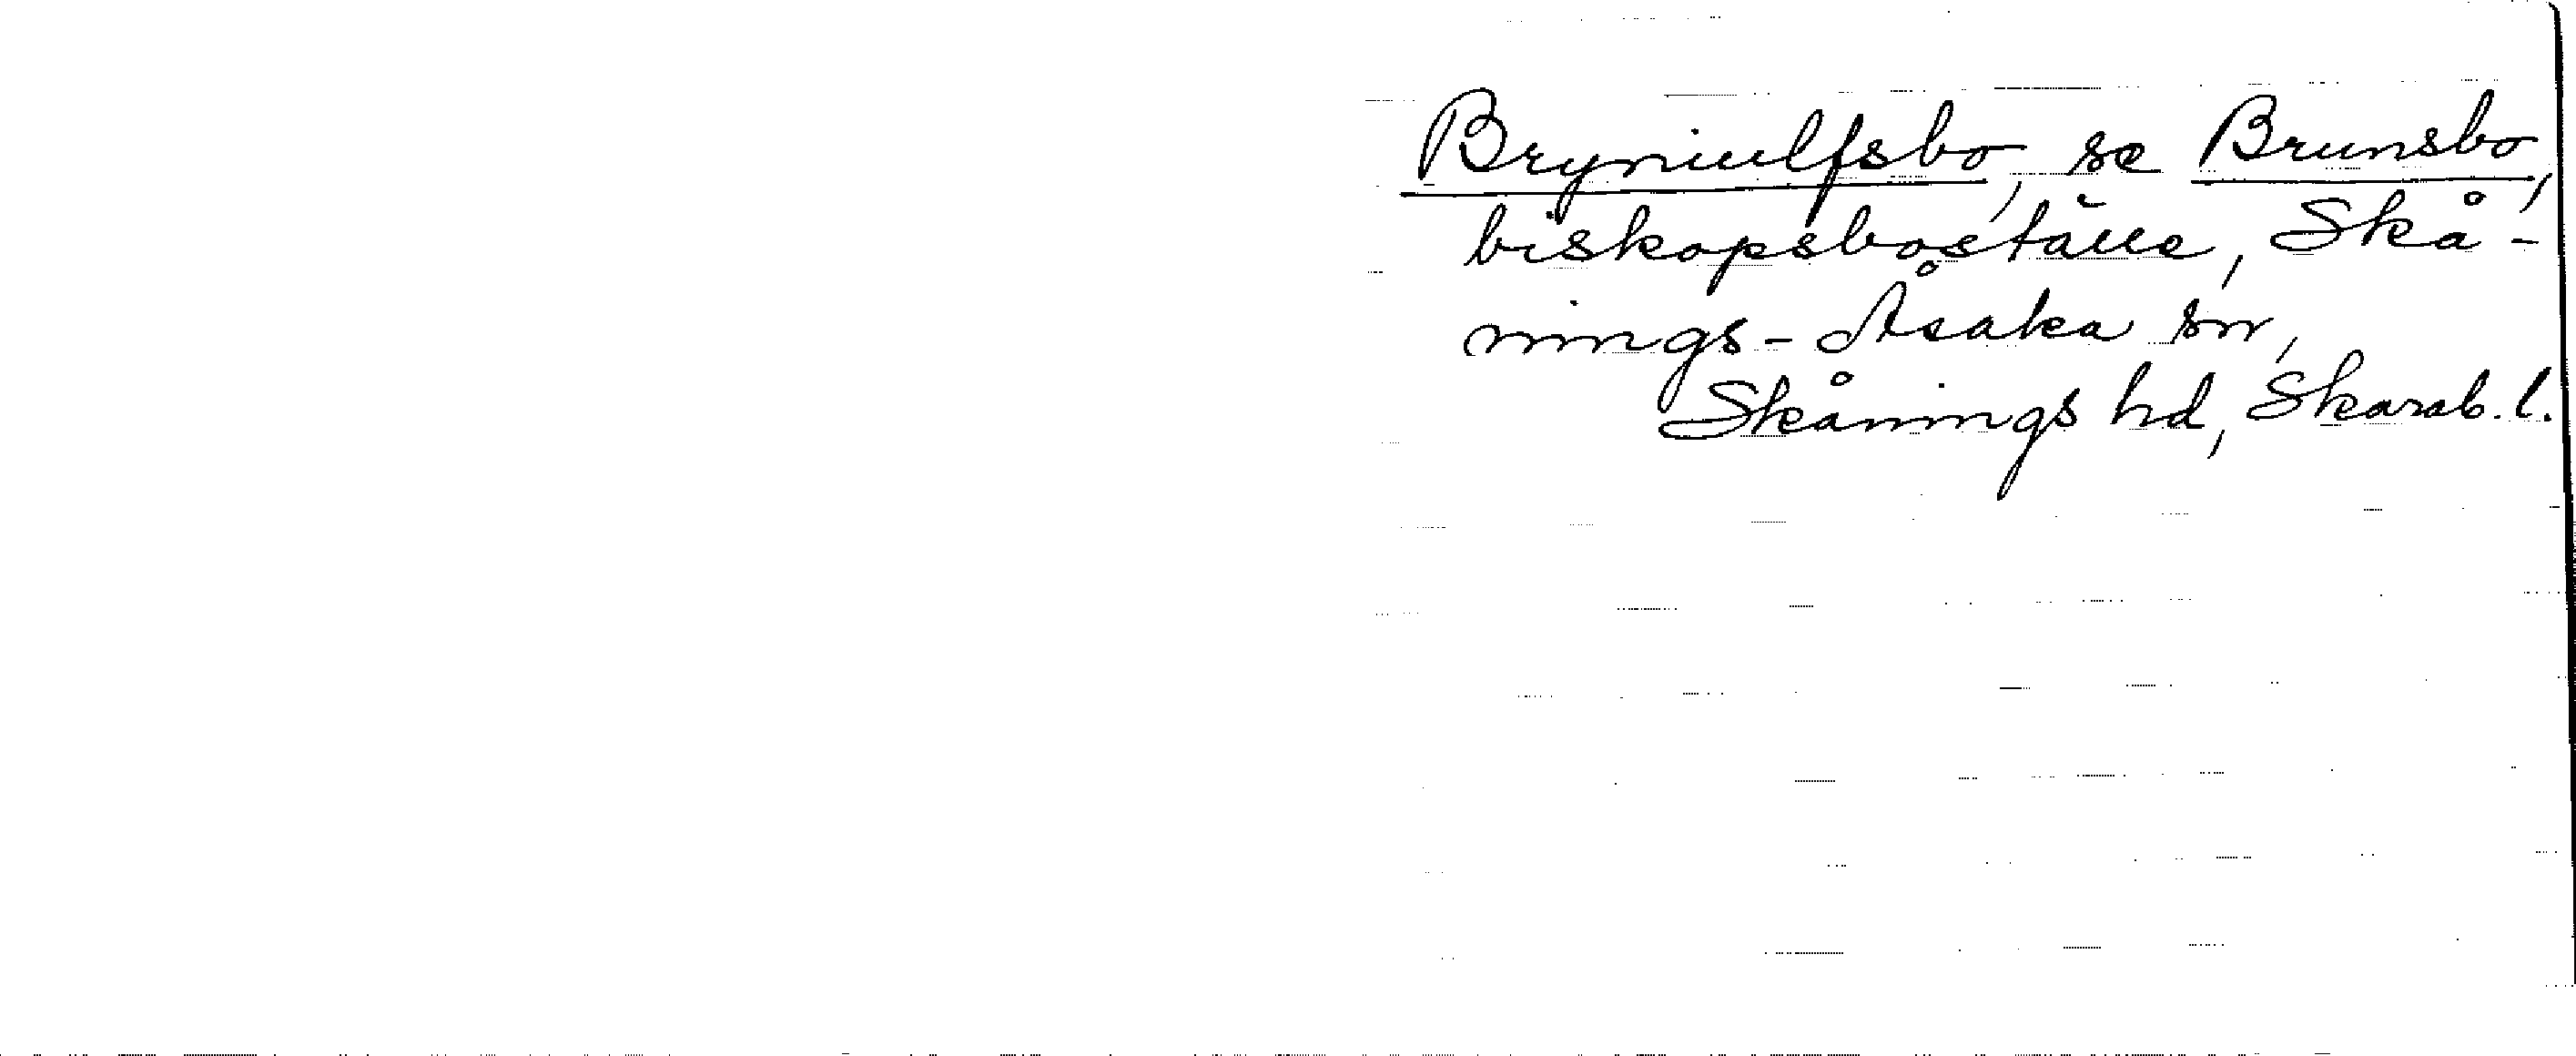 Bryniulfsbo, se Brunsbo,
biskopsboställe, Skå-
nings-Åsaka sn,
Skånings hd, Skarab. l.